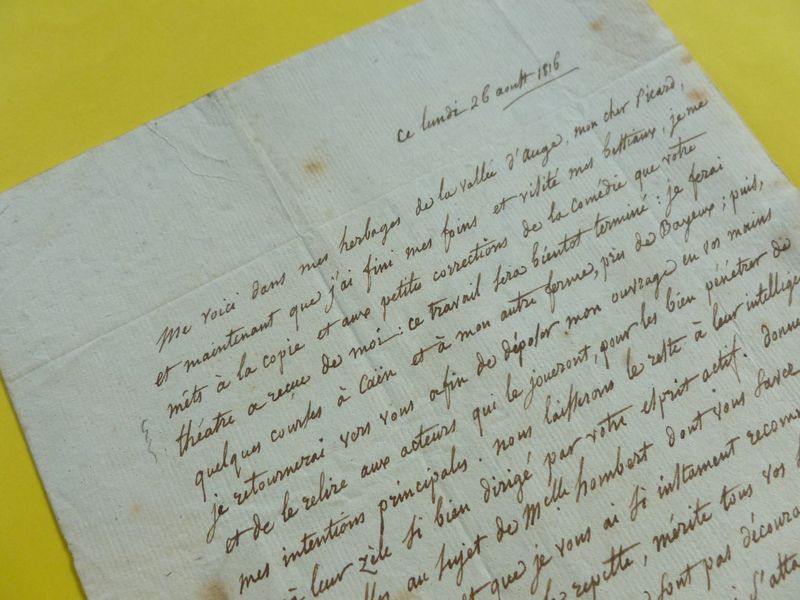 ce lundi 26 aoust 1816
Me voici dans mes herbages de la vallée d'Auge, mon cher Picard,
et maintenant que j'ai fini mes foins et visité mes bestiaux, je me
mets à la copie et aux petites corrections de la comédie que votre
théatre a reçue de moi: ce travail sera bientot terminé: je ferai
quelques courses à Caën et à mon autre ferme, près de Bayeux; puis,
je retournerai vers vous afin de déposer mon ouvrage en vos mains
et de le relire aux acteurs qui le joueront, pour les bien pénétrer de
mes intentions principales. nous laisserons le reste à leur intelligen
à leur zèle si bien dirigé par votre esprit actif. donne
lles au sujet de Melle hombert dont vous savez
et que je vous ai si instament recom
le repette, mérite tous vos
sont pas découra
s'atta